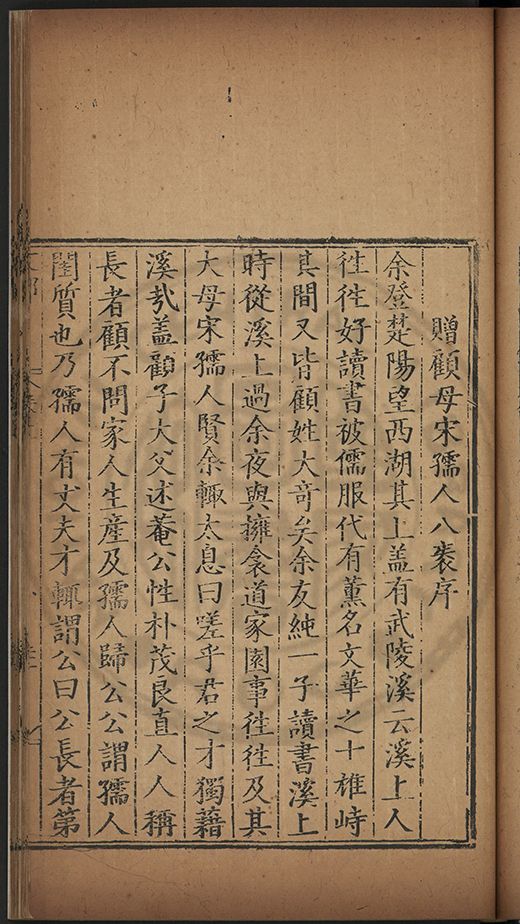 贈顧母宋孺人八袠序
余登楚陽望西湖其上盖有武陵溪云溪上人
徃徃好讀書被儒服代有薰名文華之十雄峙
其間又皆顧姓大竒矣余友純一子讀書溪上
時從溪上過余夜與擁衾道家園事徃徃及其
大母宋孺人賢余輙太息曰嗟乎君之才獨藉
溪㢤盖顧子大父述菴公性朴茂良直人人稱
長者顧不問家人生產及孺人歸公公謂孺人
閨質也乃孺人有丈夫才輙謂公曰公長者第